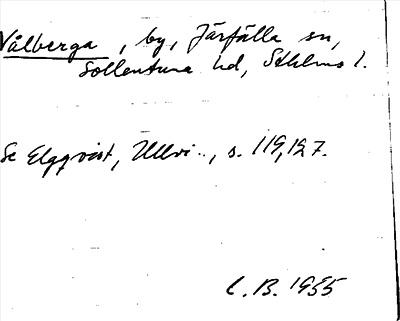 Vålberga, by, Järfälla sn,
Sollentuna hd, Sthlms l.
Se Elgqvist, Ullvi.., s. 119, 127.
C.B. 1955